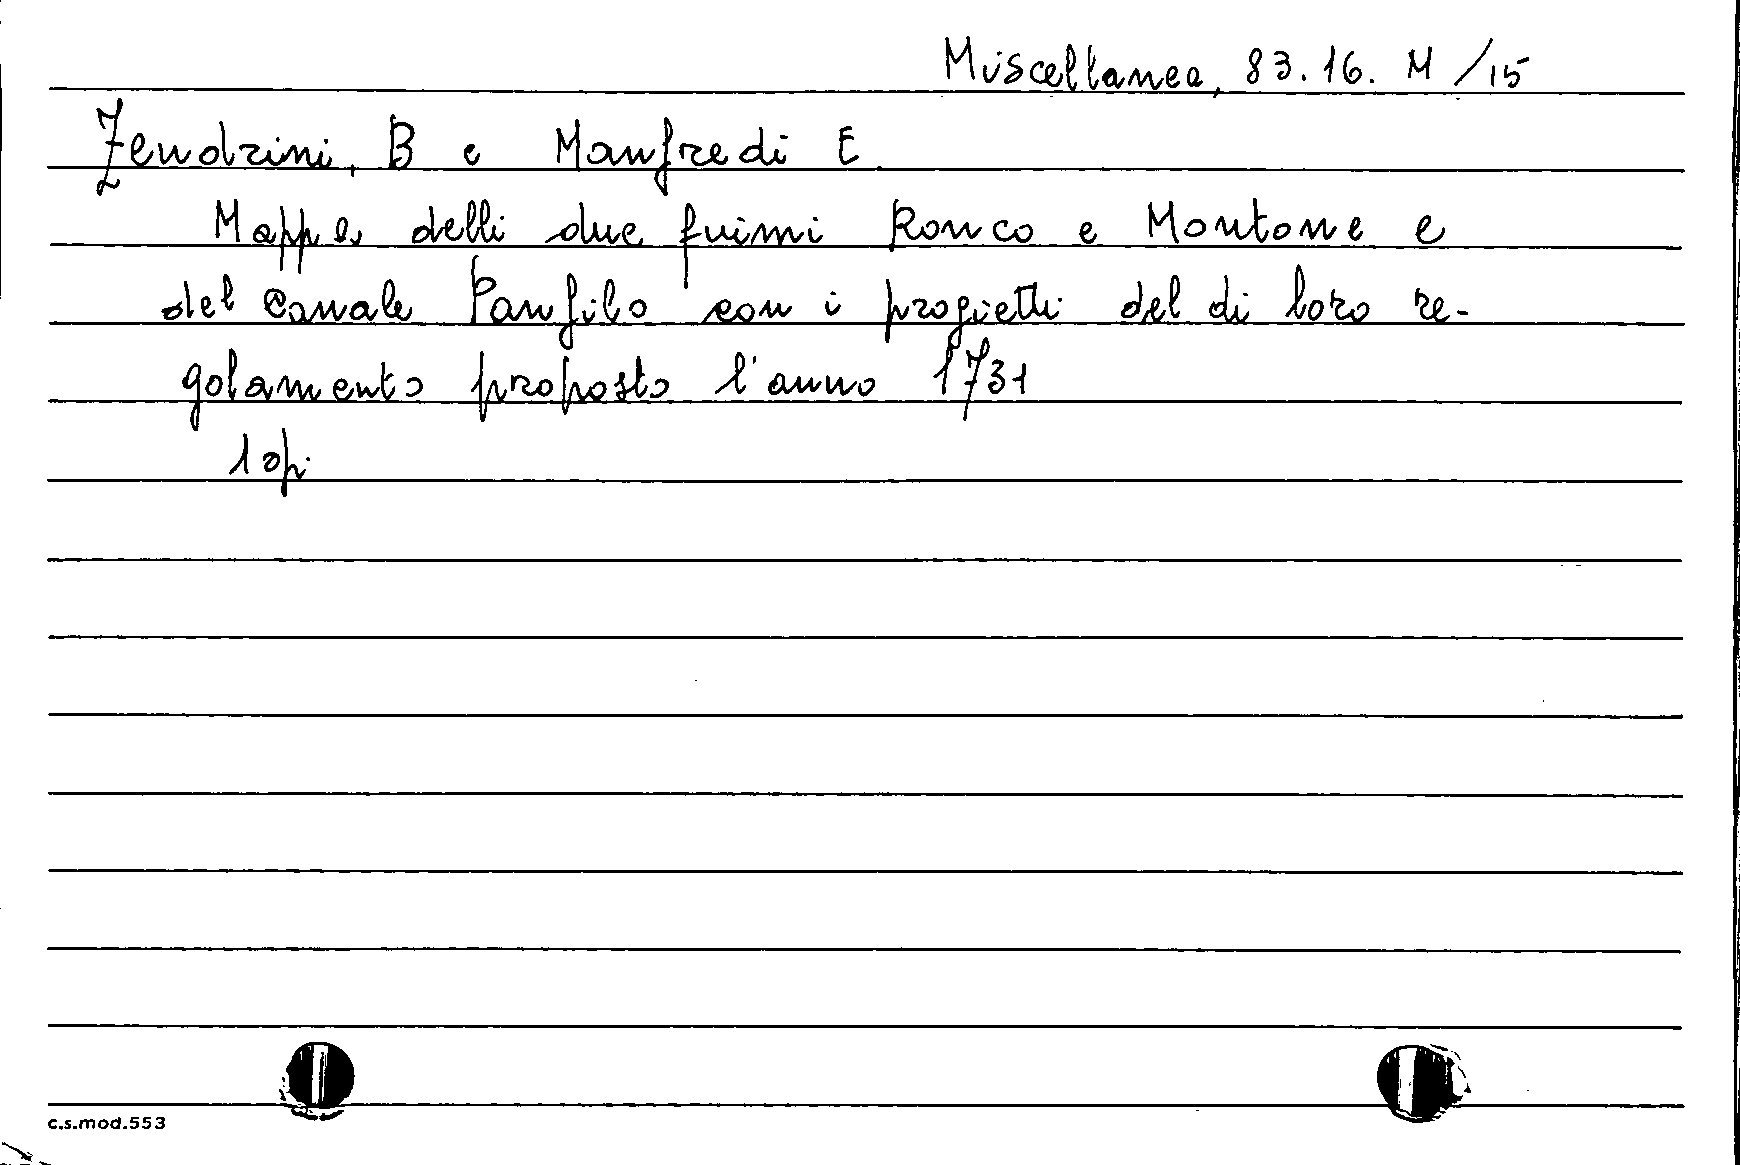 Miscellanea, 83.16. M /15
Zendrini, B e Manfredi E.
Mappa delli due fuimi Ronco e Montone e
del Canale Panfilo con i progietti del di loro re-
golamento proposto l'anno 1731
1 op.
c.s.mod.553